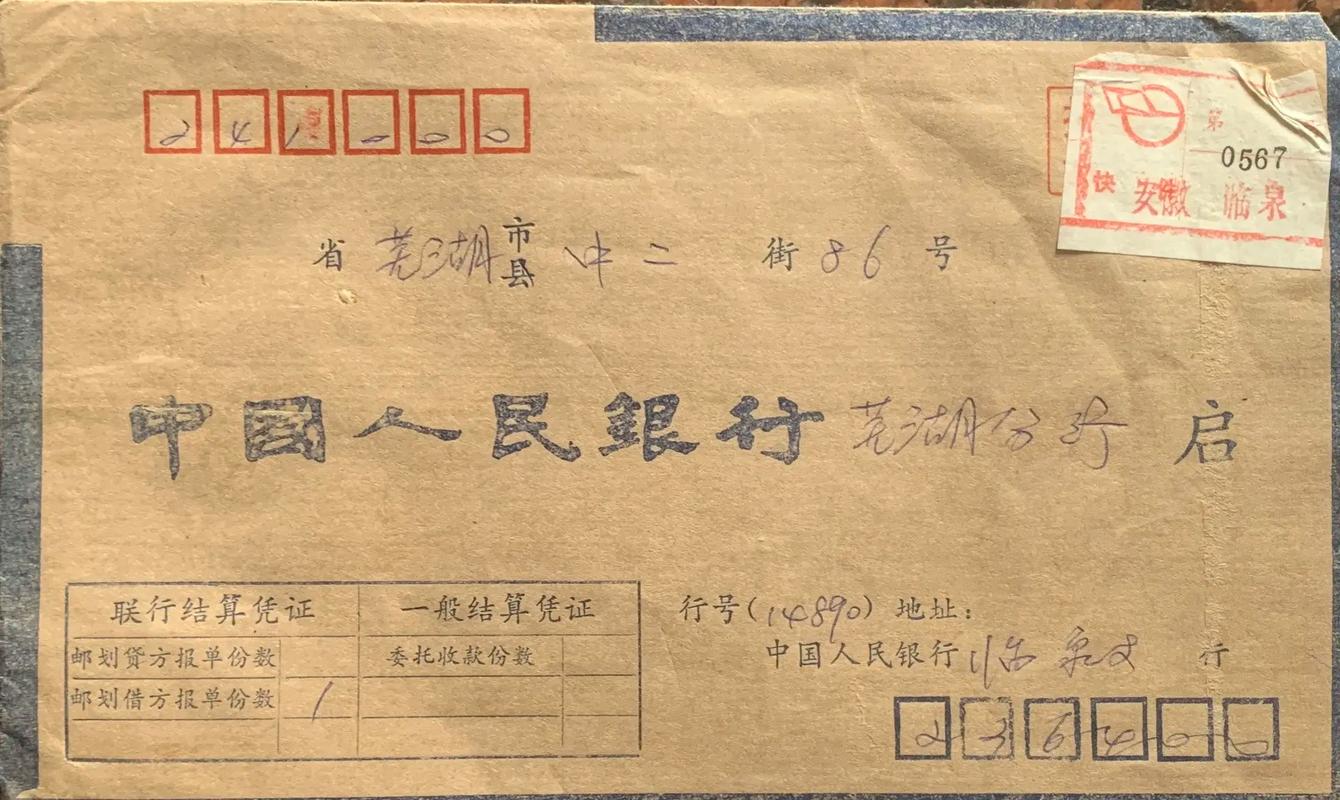 241000
第
0567
快 安徽 临泉
省 芜湖 市县 中二 街 86 号
中国人民銀行 芜湖分行 启
联行结算凭证 一般结算凭证
邮划贷方报单份数 委托收款份数
邮划借方报单份数 1
行号(14890) 地址:
中国人民银行 临泉支 行
236400